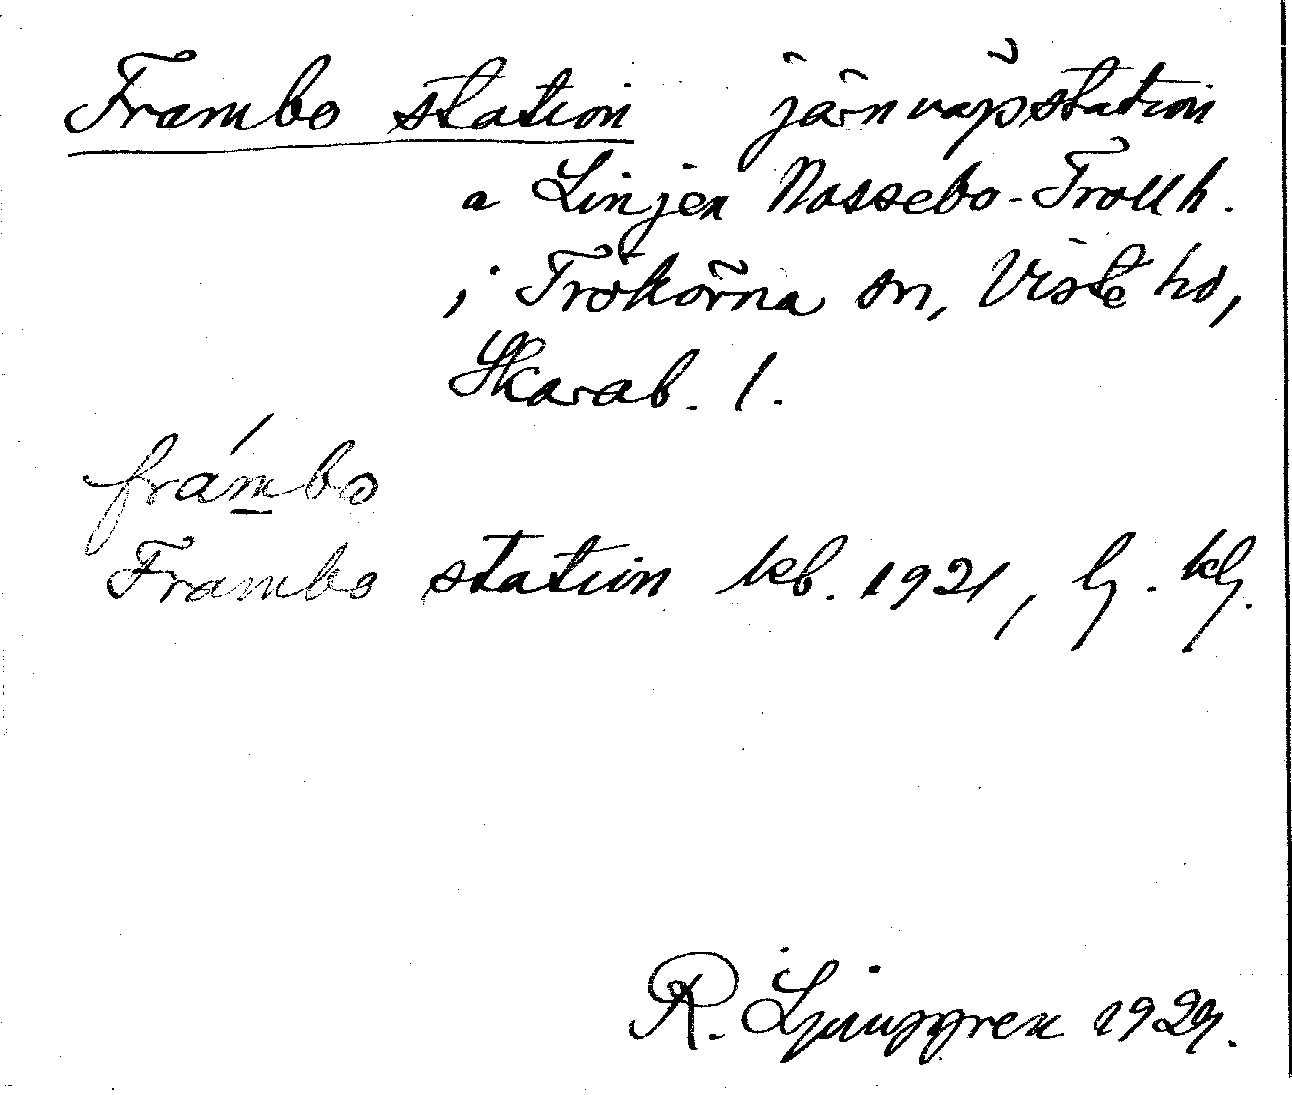 Frambo station järnvägsstation
a Linjen Nossebo-Trollh.
i Trökörna sn, Viste hd,
Skarab. l.
frámbo
Frambo station kb. 1921, lj. klj.
R. Ljunggren 1929.